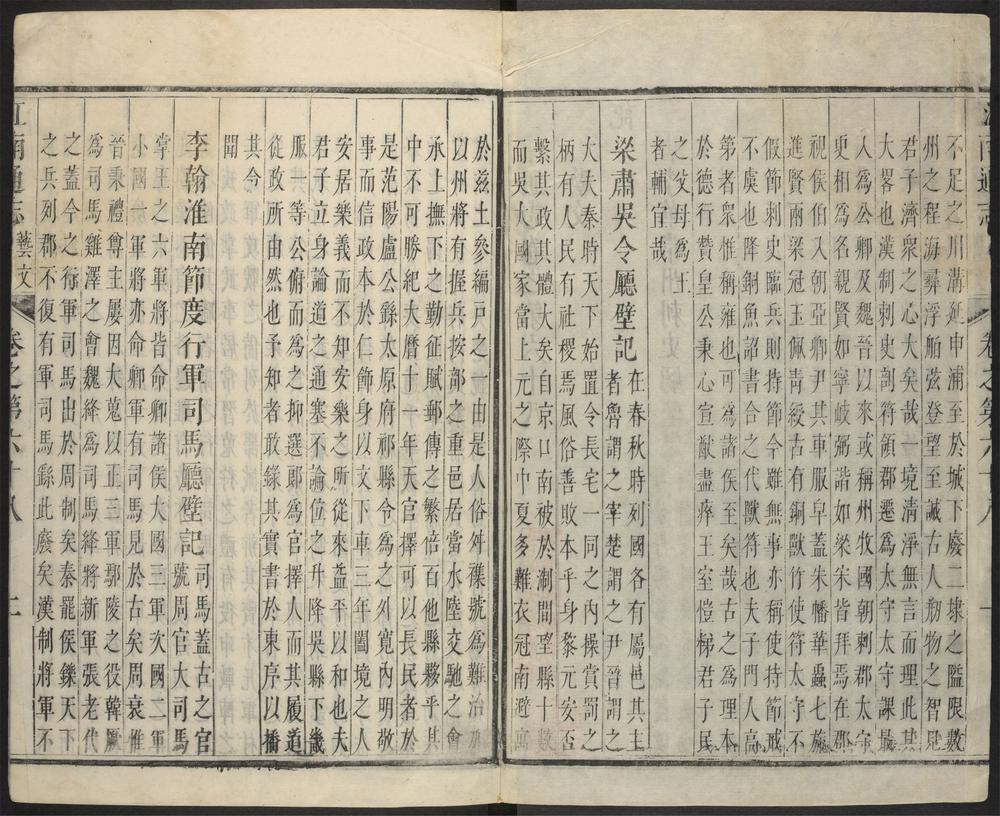 不足之川溝延申浦至於城下廢二埭之隘限數
州之程海霨浮舶弦登望至誠古人勿物之智見
君子濟衆之心大矣哉一境清淨無言而理此其
大畧也漢制刺史部符領郡遷為太守太守課最
入為公卿及魏晉以來或稱州牧國朝刺郡太守
更相為名親賢如寧岐弼諧如梁宋皆拜焉在郡
而視侯伯入朝亞卿尹其車服皁蓋朱幡華蟲七旒
進賢兩梁冠玉佩靑綬古有銅獸竹使符太守不
假節刺史臨兵則持節今雖無事亦稱使持節戒
不虞也降銅魚詔書合之代獸符也夫子門人高
第者衆惟稱雍也可為諸侯至矣哉古之為理本
於德行贊皇公秉心宣猷盡瘁王室愷悌君子民
之父母為王
者輔宜哉
梁肅吳令廳壁記
在春秋時列國各有屬邑其主
者魯謂之宰楚謂之尹晉謂之
大夫秦時天下始置令長宅一同之內操賞罰之
柄有人民有社稷焉風俗善敗本乎身黎元安否
繫其政其體大矣自京口南被於淛間望縣十數
而吳大國家當上元之際中夏多難衣冠南避寓
於茲土參編戶之一由是人俗舛襍號為難治加
以州將有握兵按部之重邑居當水陸交馳之會
承上撫下之勤征賦郵傳之繁倍百他縣夥乎其
中不可勝紀大曆十一年天官擇可以長民者於
是范陽盧公繇太原府祁縣令為之外寬內明敬
事而信政本於仁飾身以文下車三年闔境之人
安居樂義而不知安樂之所從來葢平以和也夫
君子立身論道之通塞不論位之升降吳縣下畿
服一等公俯而為之抑選郎為官擇人而其履道
從政所由然也予知者敢錄其實書於東序以播
其令
聞
李翰淮南節度行軍司馬廳壁記
司馬蓋古之官
號周官大司馬
掌王之六軍將皆命卿諸侯大國三軍次國二軍
小國一軍將亦命卿有司馬見於古矣周衰惟
晉秉禮尊主屢因大蒐以正三軍鄢陵之役韓厥
為司馬雞澤之會魏絳為司馬絳將新軍張老代
之蓋今之行軍司馬出於周制矣秦罷侯鑠天下
之兵列郡不復有軍司馬繇此廢矣漢制將軍不
江南通志
藝文
卷之第六十八